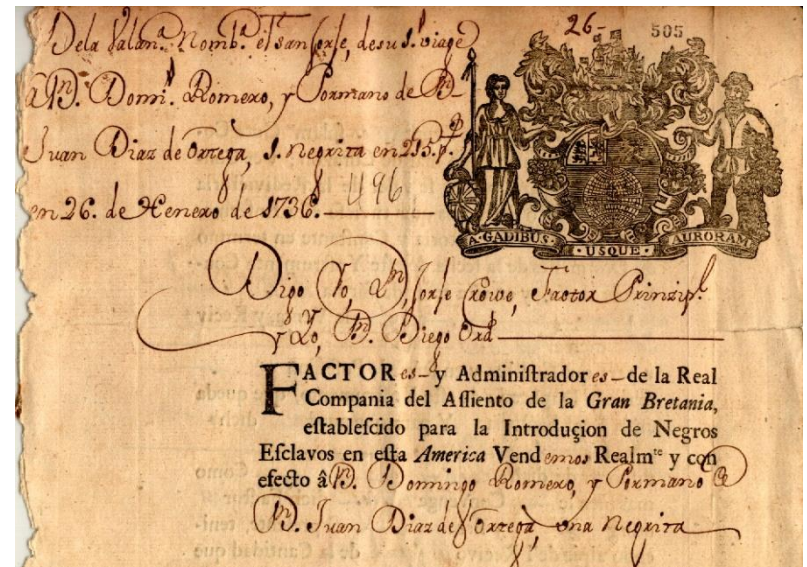 Dela Valan.ª Nomb.ª el San Jorje, de su 1.º viage
26- 505
a D.ⁿ Domi.º Romero, y Por mano de D.ⁿ
Juan Diaz de Ortega, 1. negrita en 215.p.ˢ
en 26. de Henero de 1736. 496
A·GADIBUS· ·USQUE· AURORAM
Digo Yo, D.ⁿ Jorje Crowe, Factor Prinzip.ˡ
y Yo, D.ⁿ Diego Ord
FACTORes y Adminiſtradores de la Real
Compania del Aſſiento de la Gran Bretania,
eſtableſcido para la Introduçion de Negros
Eſclavos en eſta America Vendemos Realmᵗᵉ y con
efecto â D.ⁿ Domingo Romero, y Por mano de
D.ⁿ Juan Diaz de Ortega una Negrita